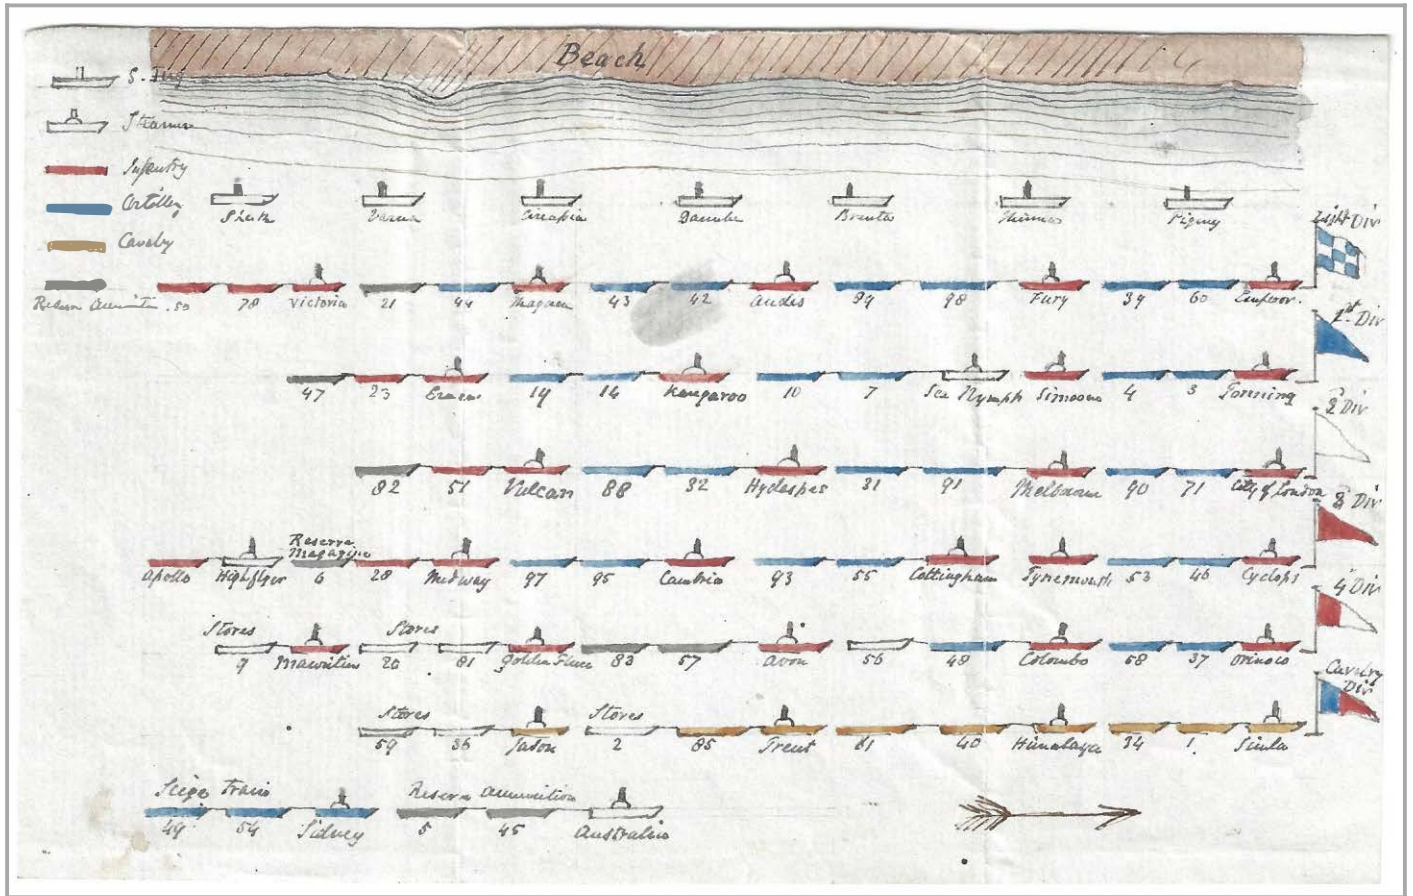 Beach
S. Tug
Steamer
Infantry
Artillery
Cavalry
Reserve Ammunition
Varna Circassia Danube Brenta Thames Pigmy
Light Div
50 78 Victoria 21 44 43 42 Andes 89 98 Fury 39 60 Emperor.
1st Div
47 23 19 14 Kangaroo 10 7 Sea Nymph Simoom 4 3 Tonning
2 Div
82 51 Vulcan 88 32 Hydaspes 31 91 Melbourne 90 71 City of London
3 Div
Reserve
Magazine
Apollo Highflyer 6 28 Medway 97 95 Cambria 93 55 Cottingham Tynemouth 53 46 Cyclops
4 Div
Stores Stores
9 Mauritius 20 81 Golden Fleece 83 57 Avon 56 48 Colombo 58 37 Orinoco
Cavalry
Div
Stores Stores
59 36 Jason 2 85 Trent 61 40 Himalaya 34 1 Simla
Siege Train Reserve Ammunition
49 54 Sidney 5 45 Australia